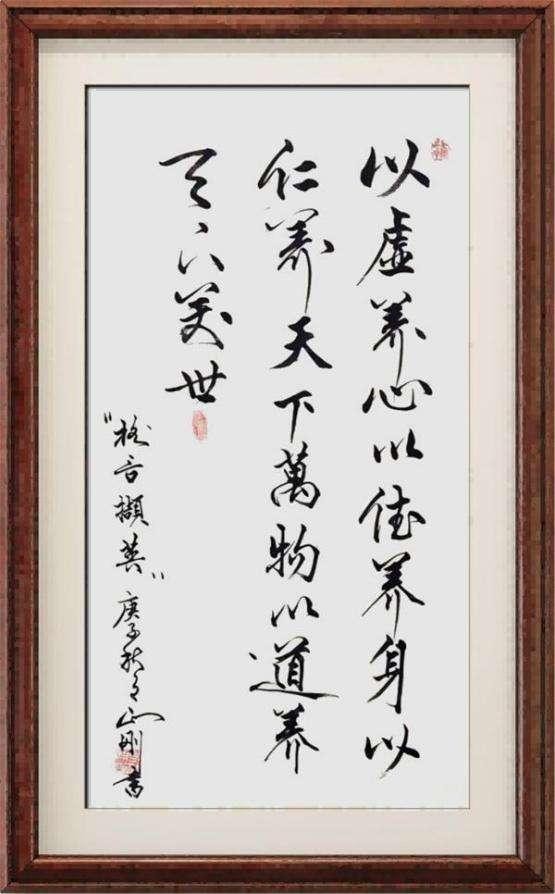 以虚养心以德养身以
仁养天下萬物以道养
天下萬世
"格言擷英"庚子秋月剛書